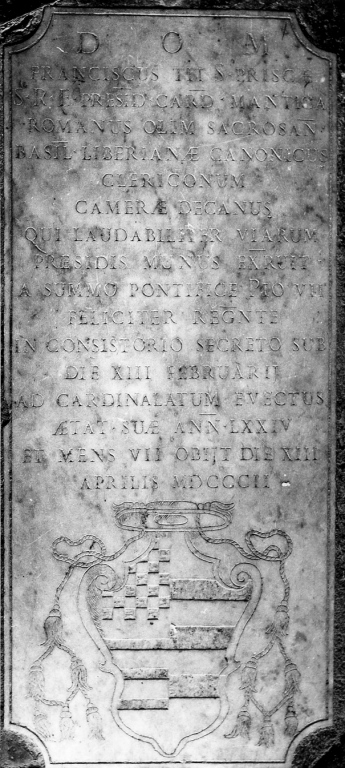 D O M
FRANCISCUS TIT S PRISCÆ
S R E PRESB CARD MANTICA
ROMANUS OLIM SACROSAN
BASIL LIBERIANÆ CANONICUS
CLERICORUM
CAMERÆ DECANUS
QUI LAUDABILITER VIARUM
PRESIDIS MUNUS EXRCIT
A SUMMO PONTIFICE PIO VII
FELICITER REGNTE
IN CONSISTORIO SECRETO SUB
DIE XIII FEBRUARII
AD CARDINALATUM EVECTUS
ÆTAT SUÆ ANN LXXIV
ET MENS VII OBIJT DIE XIII
APRILIS MDCCCII